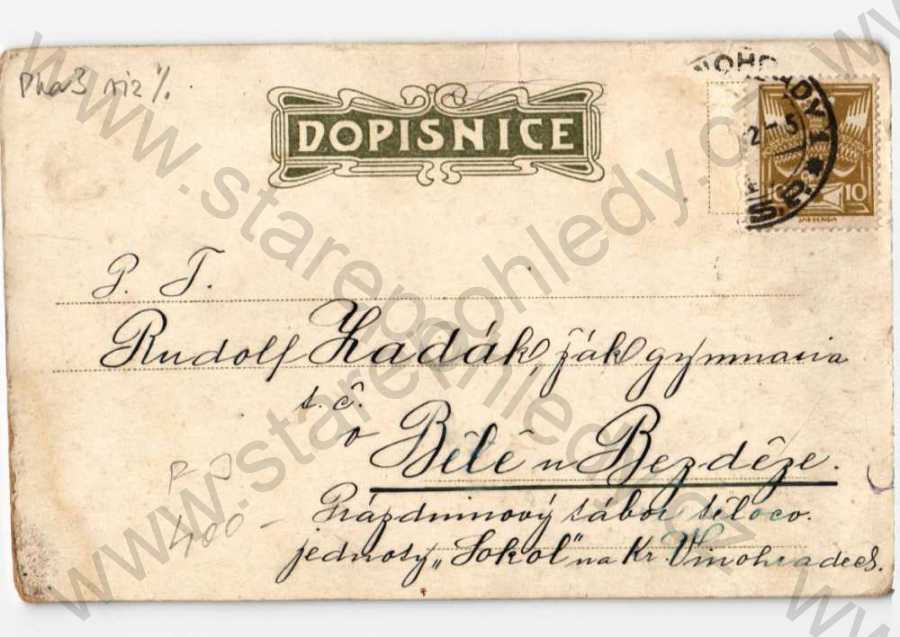 DOPISNICE
10
P. T.
Rudolf Zadák, žák gymnasia
t. č.
v
Bělé u Bezděze.
Prázdninový tábor těloc.
jednoty „Sokol" na Kr. Vinohradech.
400 -
www.starepohledy.cz